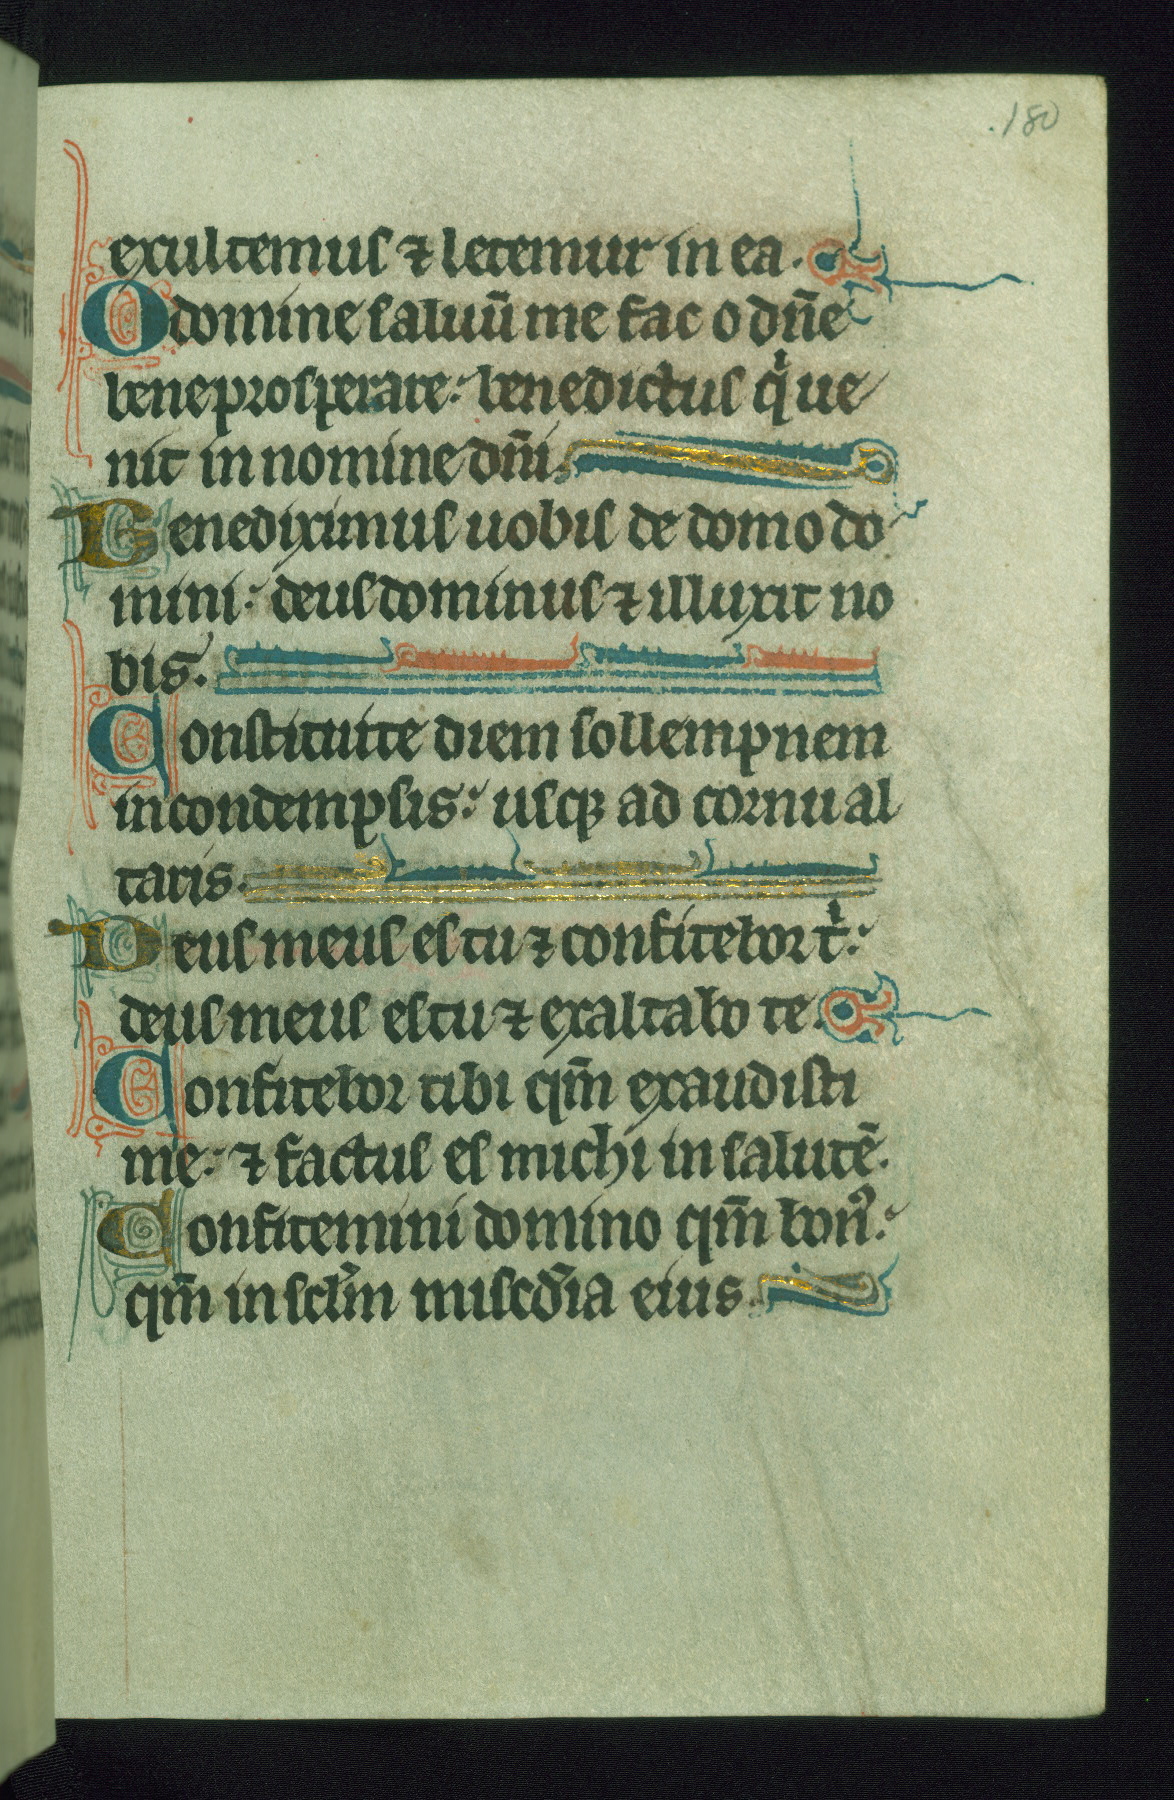 180
exultemus ⁊ letemur in ea.
O domine saluū me fac o dn̄e
bene prosperare: benedictus qͥ ue
nit in nomine dn̄i.
Benediximus uobis de domo do
mini: deus dominus ⁊ illuxit no
bis.
Constituite diem sollempnem
in condempsis: usqꝫ ad cornu al
taris.
Deus meus es tu ⁊ confitebor tͥ:
deus meus es tu ⁊ exaltabo te.
Confitebor tibi qm̄ exaudisti
me: ⁊ factus es michi in salutē.
Confitemini domino qm̄ bonꝰ:
qm̄ in sclm̄ miscd̄ia eius.